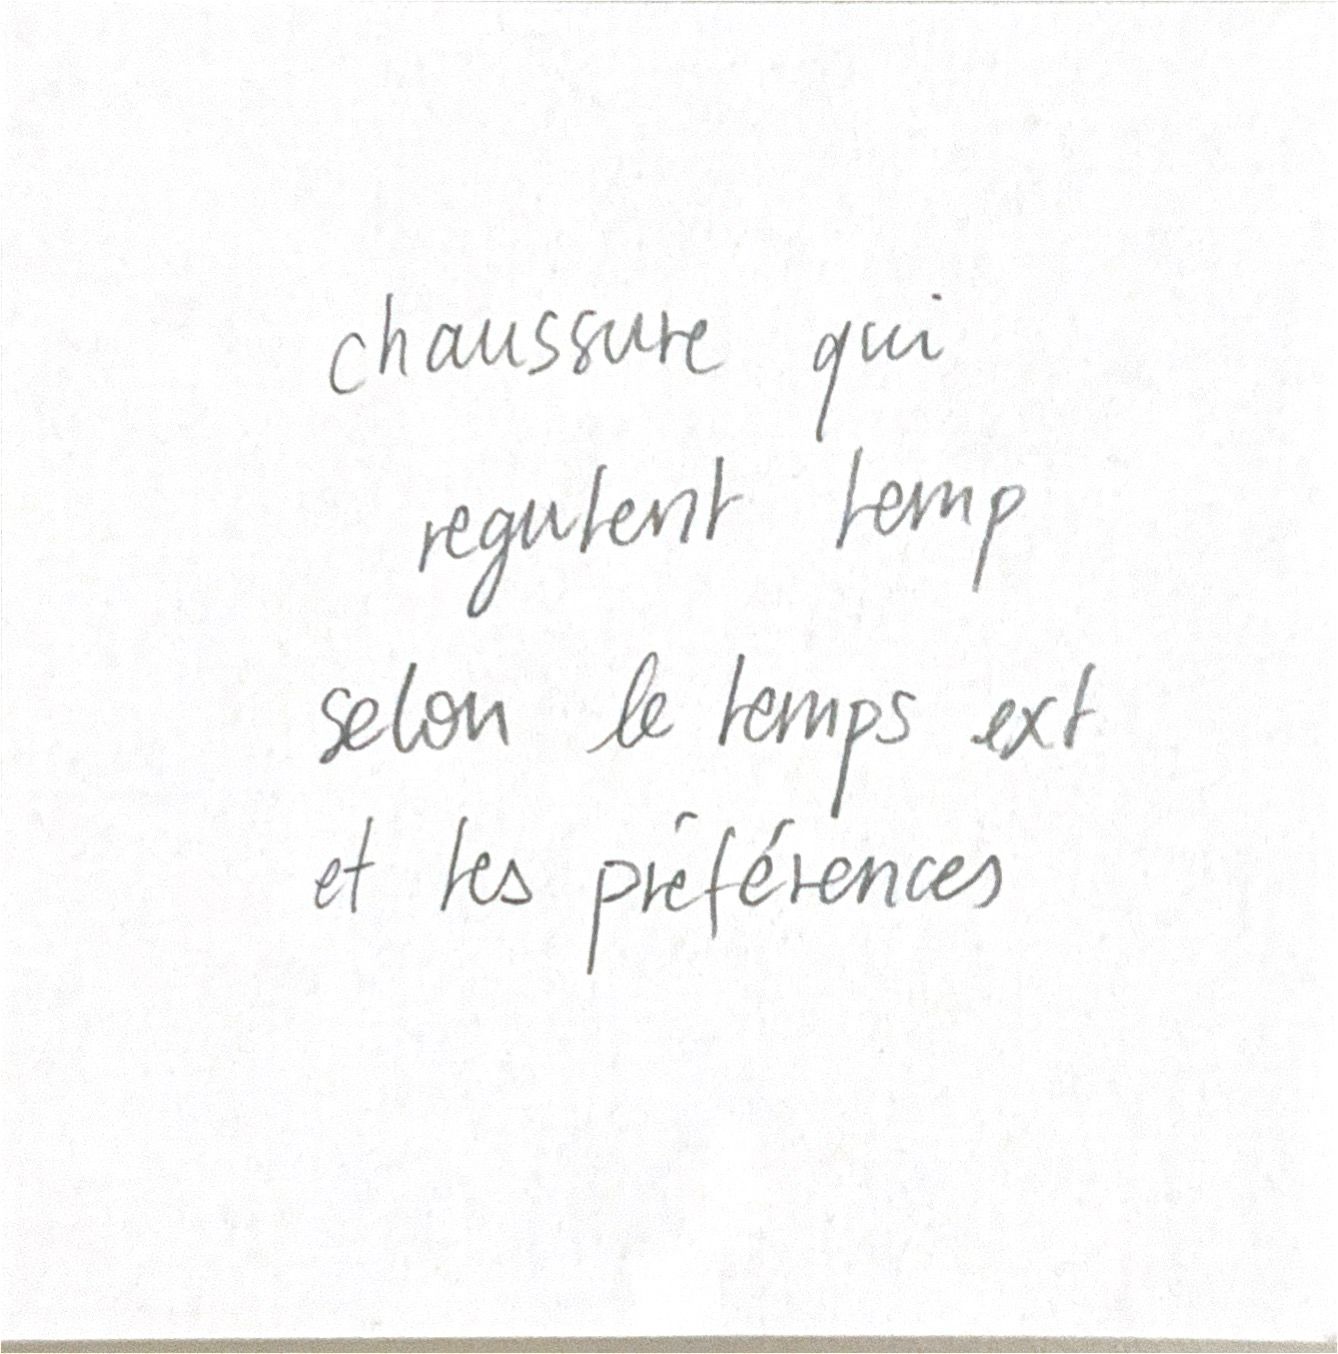 chaussure qui
regulent temp
selon le temps ext
et tes préférences